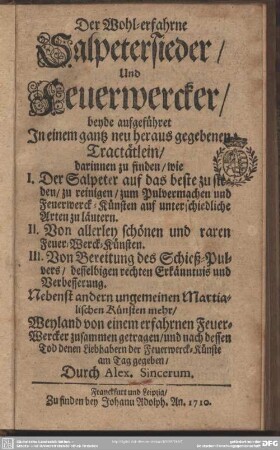 Der Wohl-erfahrne
Salpetersieder/
Und
Feuerwercker/
beyde aufgeführet
In einem gantz neu heraus gegebenen
Tractätlein/
darinnen zu finden/ wie
I. Der Salpeter auf das beste zu sie-
den/ zu reinigen/ zum Pulvermachen und
Feuerwerck-Künsten auf unterschiedliche
Arten zu läutern.
II. Von allerley schönen und raren
Feuer-Werck-Künsten.
III. Von Bereitung des Schieß-Pul-
vers/ desselbigen rechten Erkänntnis und
Verbesserung.
Nebenst andern ungemeinen Martia-
lischen Künsten mehr/
Weyland von einem erfahrnen Feuer-
Wercker zusammen getragen/ und nach dessen
Tod denen Liebhabern der Feuerwerck-Künste
am Tag gegeben/
Durch Alex. Sincerum.
Franckfurt und Leipzig/
Zu finden bey Johann Adolph. An. 1710.